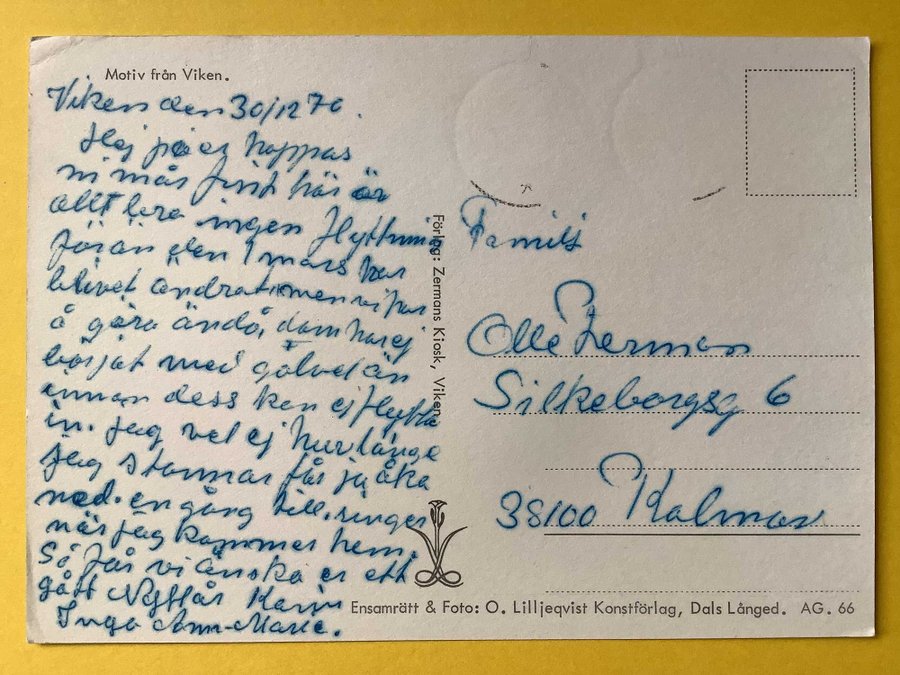 Motiv från Viken.
Viken den 30/12 70.
Hej på er hoppas
ni mår fint här är
allt bra ingen flyttning
förän den 1 mars har
blivet ändrat men vi har
å göra ändå, dom har ej
börjat med golvet än
innan dess kan ej flytta
in. Jag vet ej hur länge
jag stannar får ju åka
ned en gång till. ringer
när jag kommer hem.
Så får vi önska er ett
gått Nyttår Karin
Inga Ann-Marie.
Förlag: Zermans Kiosk, Viken
Familj
Olle Zerman
Silkeborgsg 6
38100 Kalmar
Ensamrätt & Foto: O. Lilljeqvist Konstförlag, Dals Långed. AG. 66